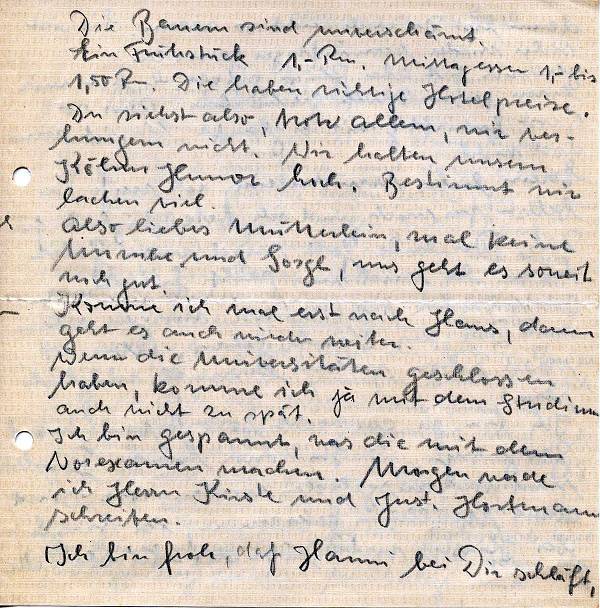 Die Bauern sind unverschämt.
Ein Frühstück 1,- Rm. Mittagessen 1,- bis
1,50 Rm. Die haben richtige Hotelpreise.
Du siehst also, trotz allem, wir ver-
hungern nicht. Wir halten unseren
Kölner Humor hoch. Bestimmt wir
lachen viel.
Also liebes Mütterlein, mal keine
Unruhe und Sorge, uns geht es soweit
noch gut.
Komme ich mal erst nach Haus, dann
geht es auch wieder weiter.
Wenn die Universitäten geschlossen
haben, komme ich ja mit dem Studium
auch nicht zu spät.
Ich bin gespannt, was die mit dem
Vorexamen machen. Morgen werde
ich Herrn Kürste und Just. Hortmann
schreiben.
Ich bin froh, daß Hanni bei Dir schläft,